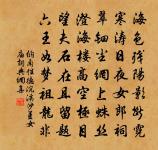 海色殘陽影斷霓
寒濤日夜女郎祠
翠鈿塵網上蛛絲
澄海樓高空極目
望夫石在且留題
六王如夢祖龍非
納蘭性德浣溪沙姜女
廟詞典網集